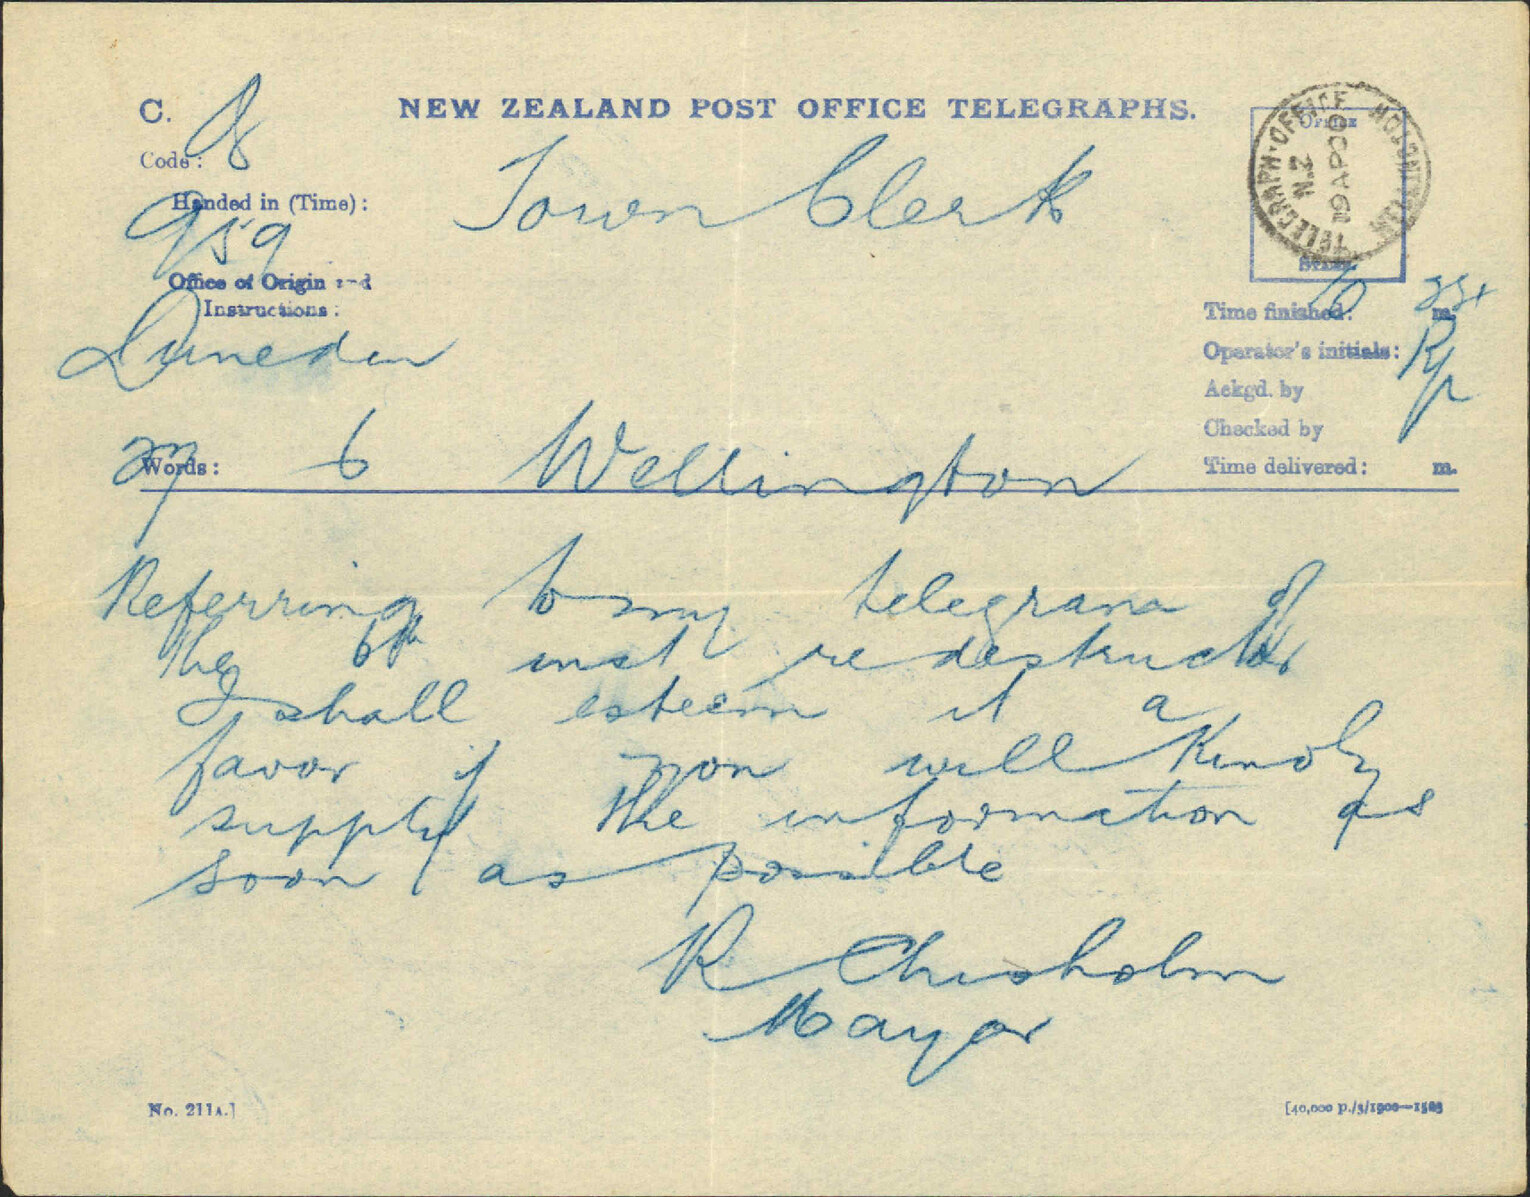 C.
NEW ZEALAND POST OFFICE TELEGRAPHS.
OFFICE
STAMP.
TELEGRAPH·OFFICE WELLINGTON
N.Z
19 AP 00
Code:
Handed in (Time):
959
Town Clerk
Office of Origin and
Instructions:
Dunedin
Time finished: 10 m.
Operator's initials:
Ackgd. by
Checked by
Time delivered: m.
Words: 6
Wellington
Referring to my telegram of
the 6th inst re destructor
I shall esteem it a
favor if you will kindly
supply the information as
soon as possible
R Chisholm
Mayor
No. 211A.]
[40,000 p./3/1900—